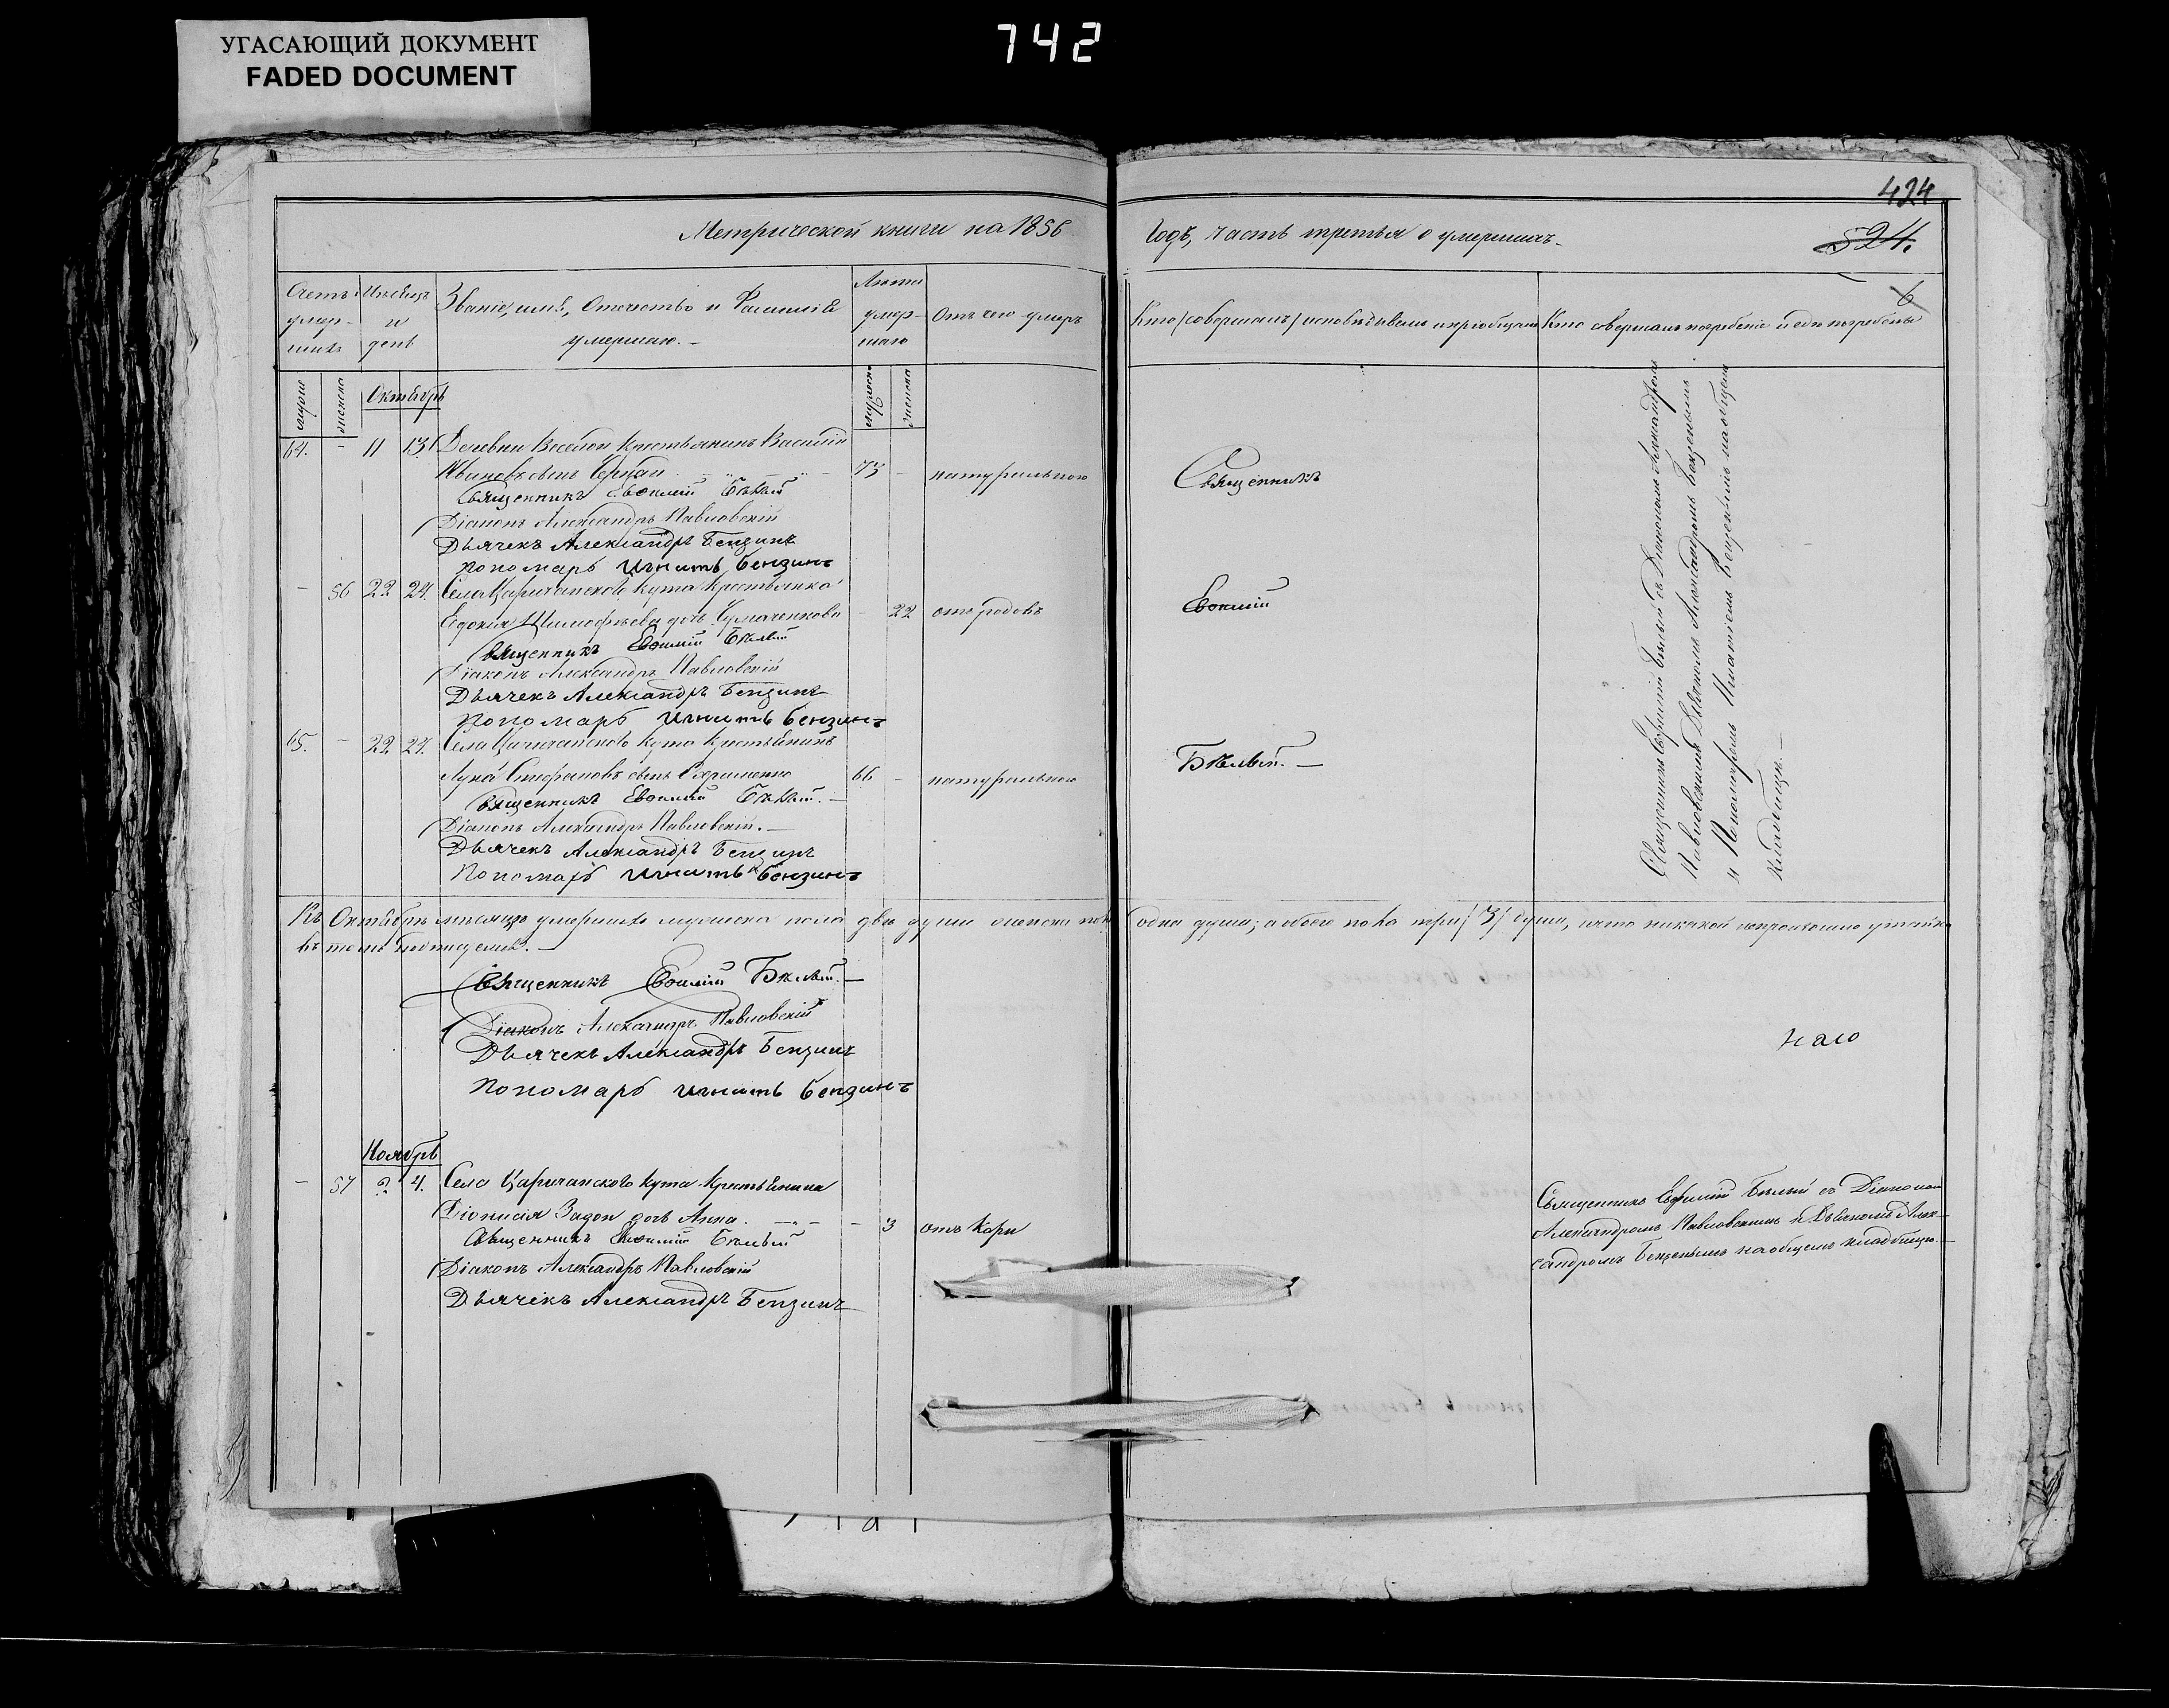 УГАСАЮЩИЙ ДОКУМЕНТ
FADED DOCUMENT
742
424
524.
6
Метрической книги на 1856
Годъ, часть третья о умершихъ.
Счетъ умер-шихъ
Мѣсяцъ и день
Званіе, имя, Отечество и Фамилія умершаго.
Лѣта умер-шаго
Отъ чего умеръ
Кто /совершалъ/ исповѣдывалъ и пріобщалъ
Кто совершалъ погребеніе и гдѣ погребены
муже
женска
Октябрь
мужеска
женска
64. - 11 13. Деревни Веселой крестьянинъ Василій
Ивановъ сынъ 73 - натуральною
Священникъ Евѳимій Бѣлый
Діаконъ Александръ Павловскій
Дьячекъ Александръ Бензинъ
Пономарь Игнатъ Бензинъ
- 56 22 24. Села Царичанского Кута Крестьянка
Тимофѣева дочь - 22 отъ родовъ
Священникъ Евѳимій Бѣлый
Діаконъ Александръ Павловскій
Дьячекъ Александръ Бензинъ
Пономарь Игнатъ Бензинъ
65. - 22 24. Села Царичанского Кута Крестьянинъ
Лука Стефановъ сынъ 66 - натуральною
Священникъ Евѳимій Бѣлый.
Діаконъ Александръ Павловскій.
Дьячекъ Александръ Бензинъ
Пономарь Игнатъ Бензинъ
Священникъ
Евѳимій
Бѣлый.
Священникъ Евфимій Бѣлый съ Діакономъ Александромъ
Павловскимъ Дьячкомъ Александромъ Бензенымъ
и Пономаремъ Игнатіемъ Бензенымъ на общемъ
кладбищѣ.
Въ Октябрѣ мѣсяцѣ умершихъ мужеска пола двѣ души женска пола одна душа; а обоего пола три /3/ души,
въ томъ подписуемся.
Священникъ Евѳимій Бѣлый.
Діаконъ Александръ Павловскій
Дьячекъ Александръ Бензинъ
Пономарь Игнатъ Бензинъ
Ноябрь
- 57 2 4. Села Царичанского Кута Крестьянина
Діонисія Задон дочь Анна. - 3 отъ Кори
Священникъ Евѳимій Бѣлый
Діаконъ Александръ Павловскій
Дьячекъ Александръ Бензинъ
Священникъ Евфимій Бѣлый съ Діакономъ
Александромъ Павловскимъ и Дьячкомъ Алек-
сандромъ Бензенымъ на общемъ кладбищѣ.